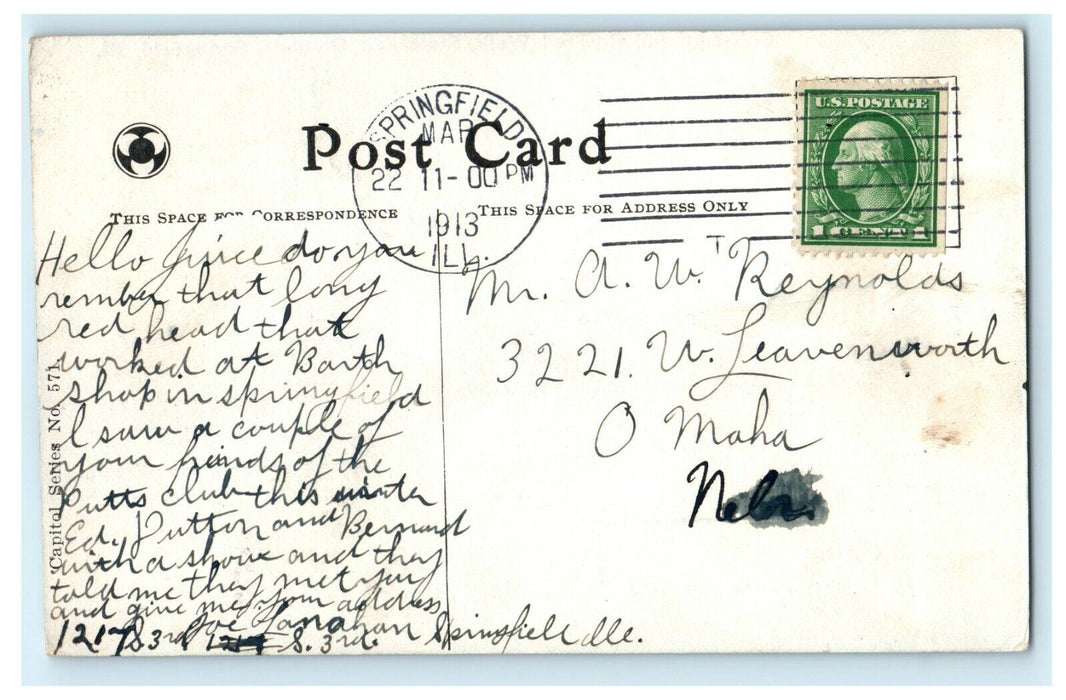 SPRINGFIELD
MAR
22 11-00 PM
1913
ILL.
U.S. POSTAGE
1 CENTS 1
Post Card
THIS SPACE FOR CORRESPONDENCE
THIS SPACE FOR ADDRESS ONLY
Capitol Series No. 571
Hello do you
rember that long
red head that
worked at Barth
shop in springfield
I saw a couple of
your friends of the
Putts club this winter
Ed. Dutton and Bernard
with a show and they
told me they met you
and give me your address
Joe Lanahan
1217 S 3rd S. 3rd. Springfield Ille.
Mr. A. W. Reynolds
3221. W. Leavenworth
Omaha
Nebr.